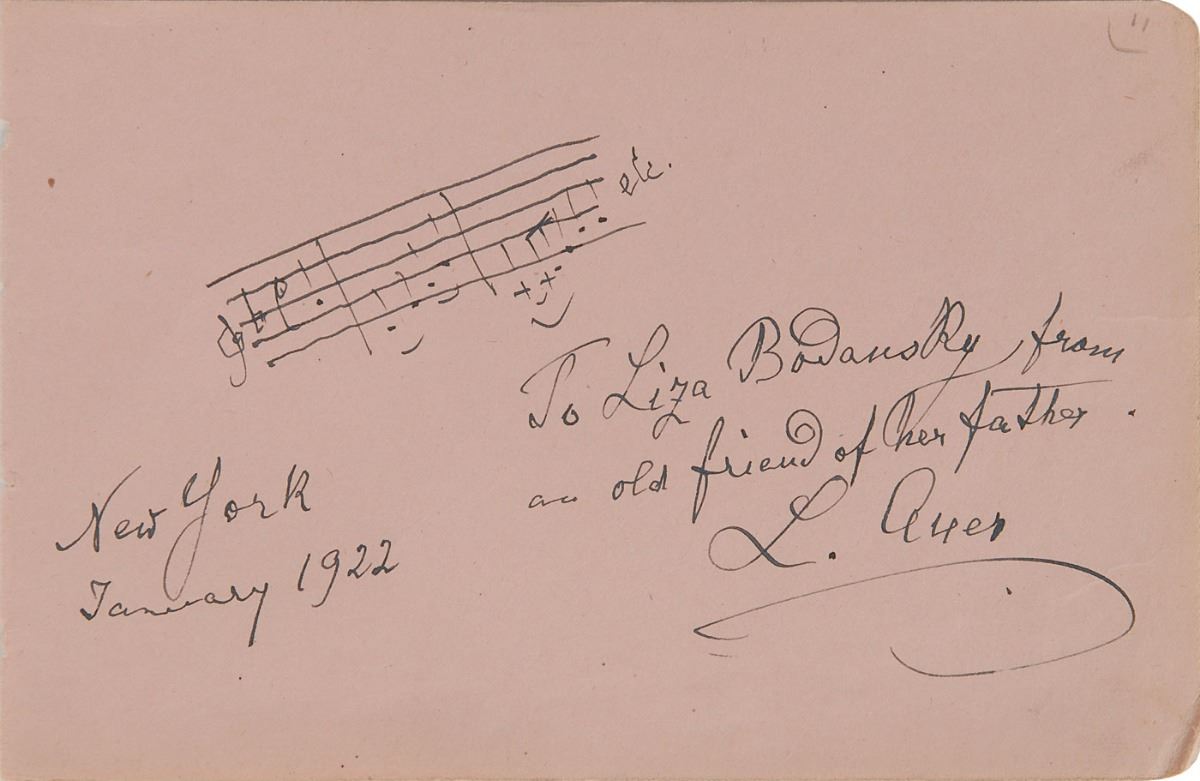 etc.
To Liza Bodansky from
an old friend of her father.
L. Auer
New York
January 1922